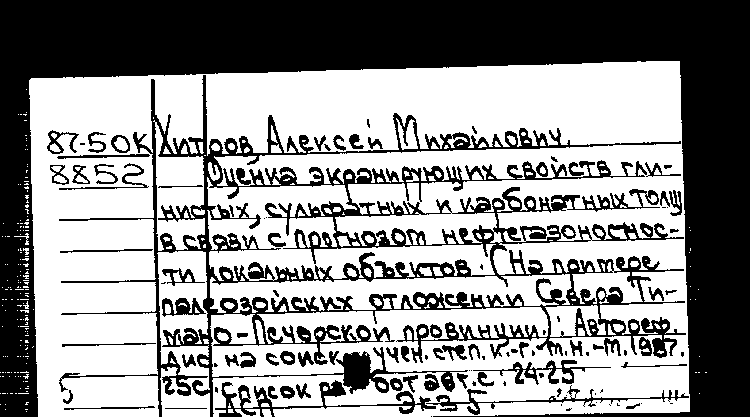 87-5ОК Хитров Алексей Михайлович.
8852 Оценка экранирующих свойств гли-
нистых, сульфатных и карбонатных толщ
в связи с прогнозом нефтегазоноснос-
ти локальных объектов. (На примере
палеозойских отложений Севера Ти-
мано-Печорской провинции). Автореф.
дис. на соиск. учен. степ. к.-г.-м.н.-М. 1987.
5 25с. Список работ авт. с: 24-25
ДСП Экз 5.